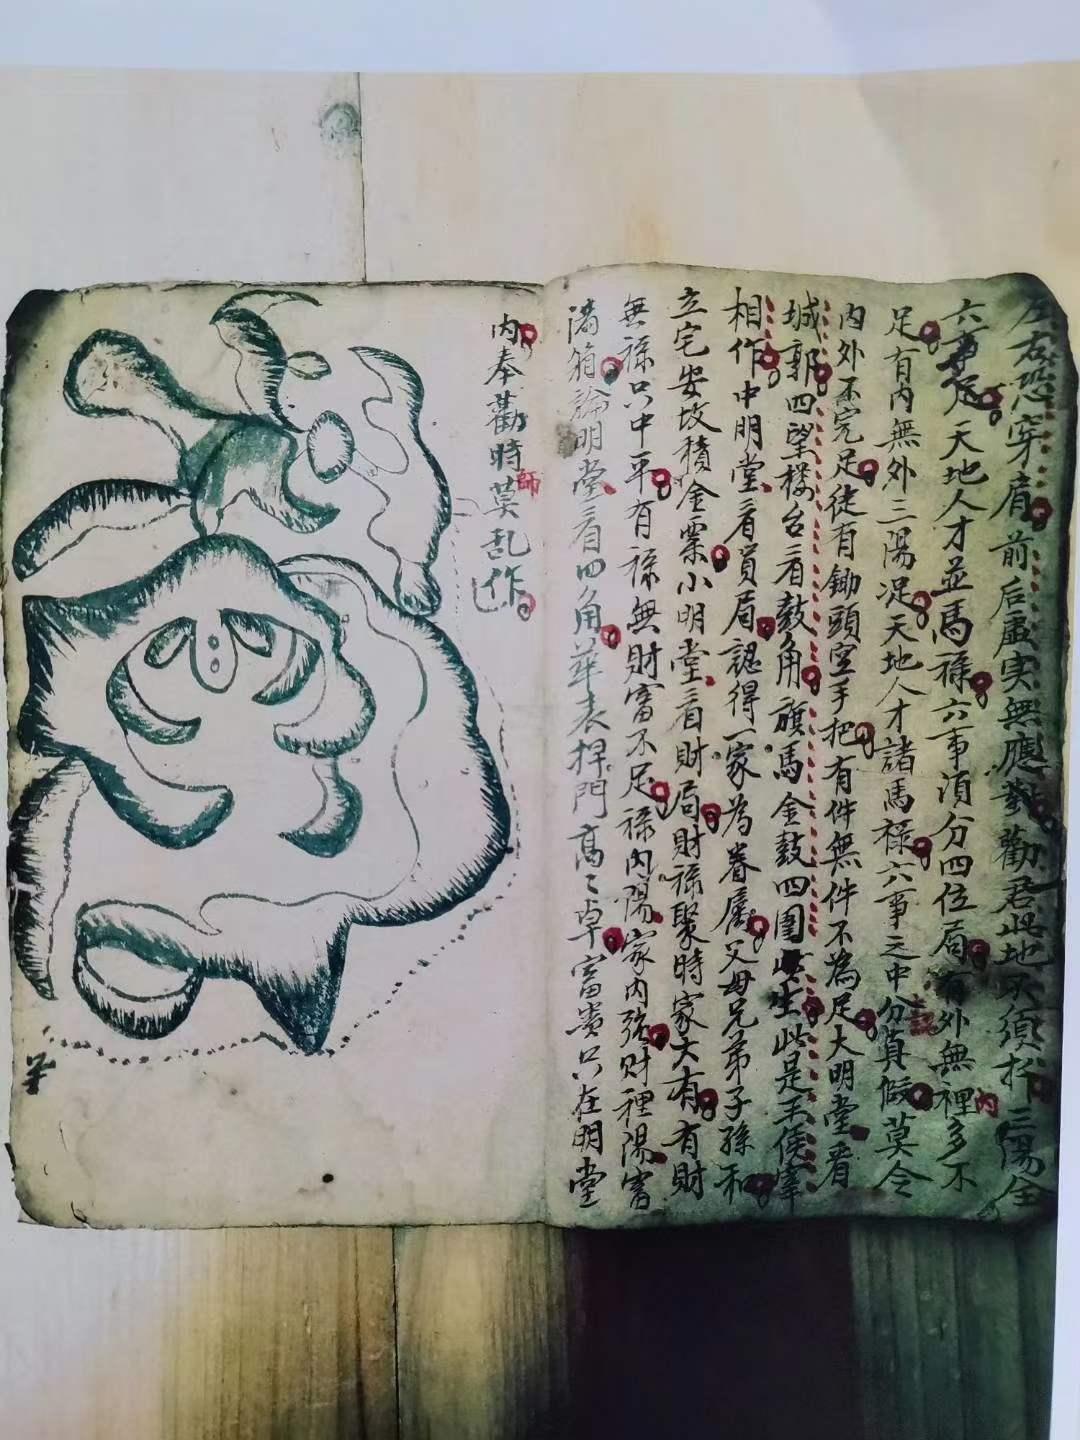 左右恐穿肩前后虛实無應對勸君此地不須扦三陽全
六事足天地人才並馬祿六事須分四位局有外無裡多不
足有内無外三陽足天地人才諸馬祿六事之中分真假莫令
内外不完足徒有鋤頭空手把有件無件不為足大明堂看
城郭四望楼台看鼓角旗馬金鼓四圍生此是王侯宰
相作中明堂看員局認得一家為眷屬父母兄弟子孫和
立宅安坟積金粟小明堂看財局財祿聚時家大有有財
無祿只中平有祿無財富不足祿内陽家内強財裡陽富
滿箱論明堂看四角華表捍門高〻卓富貴只在明堂
内奉勸時莫乱作
師
認
内